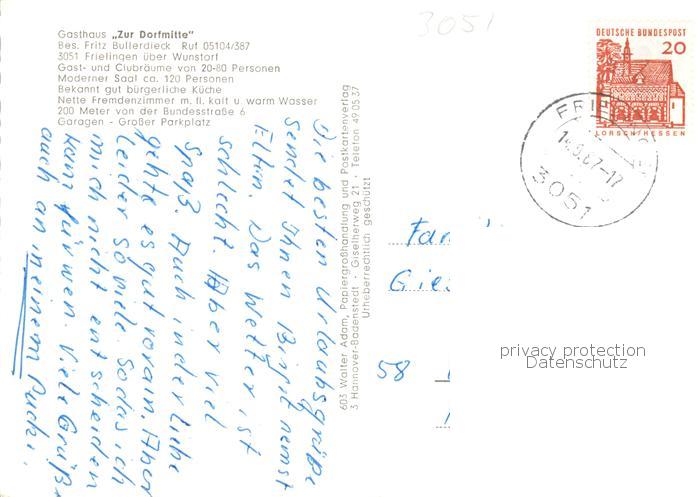 3051
Gasthaus „Zur Dorfmitte"
Bes. Fritz Bullerdieck Ruf 05104/387
3051 Frielingen über Wunstorf
Gast- und Clubräume von 20-80 Personen
Moderner Saal ca. 120 Personen
Bekannt gut bürgerliche Küche
Nette Fremdenzimmer m. fl. kalt u. warm Wasser
200 Meter von der Bundesstraße 6
Garagen - Großer Parkplatz
DEUTSCHE BUNDESPOST
20
LORSCH/HESSEN
3051
603 Walter Adam, Papiergroßhandlung und Postkartenverlag
3 Hannover-Badenstedt · Giselherweg 21 · Telefon 49 05 37
Urheberrechtlich geschützt
Die besten Urlaubsgrüße
sendet Ihnen Birgit nebst
Eltern. Das Wetter ist
schlecht. Aber viel
Spaß. Auch in der Liebe
geht es gut voran. Aber
leider so viele. Sodas ich
mich nicht entscheiden
kann für wen. Viele Grüße
auch an meinem Puchi.
Fam
Gie
58
privacy protection
Datenschutz